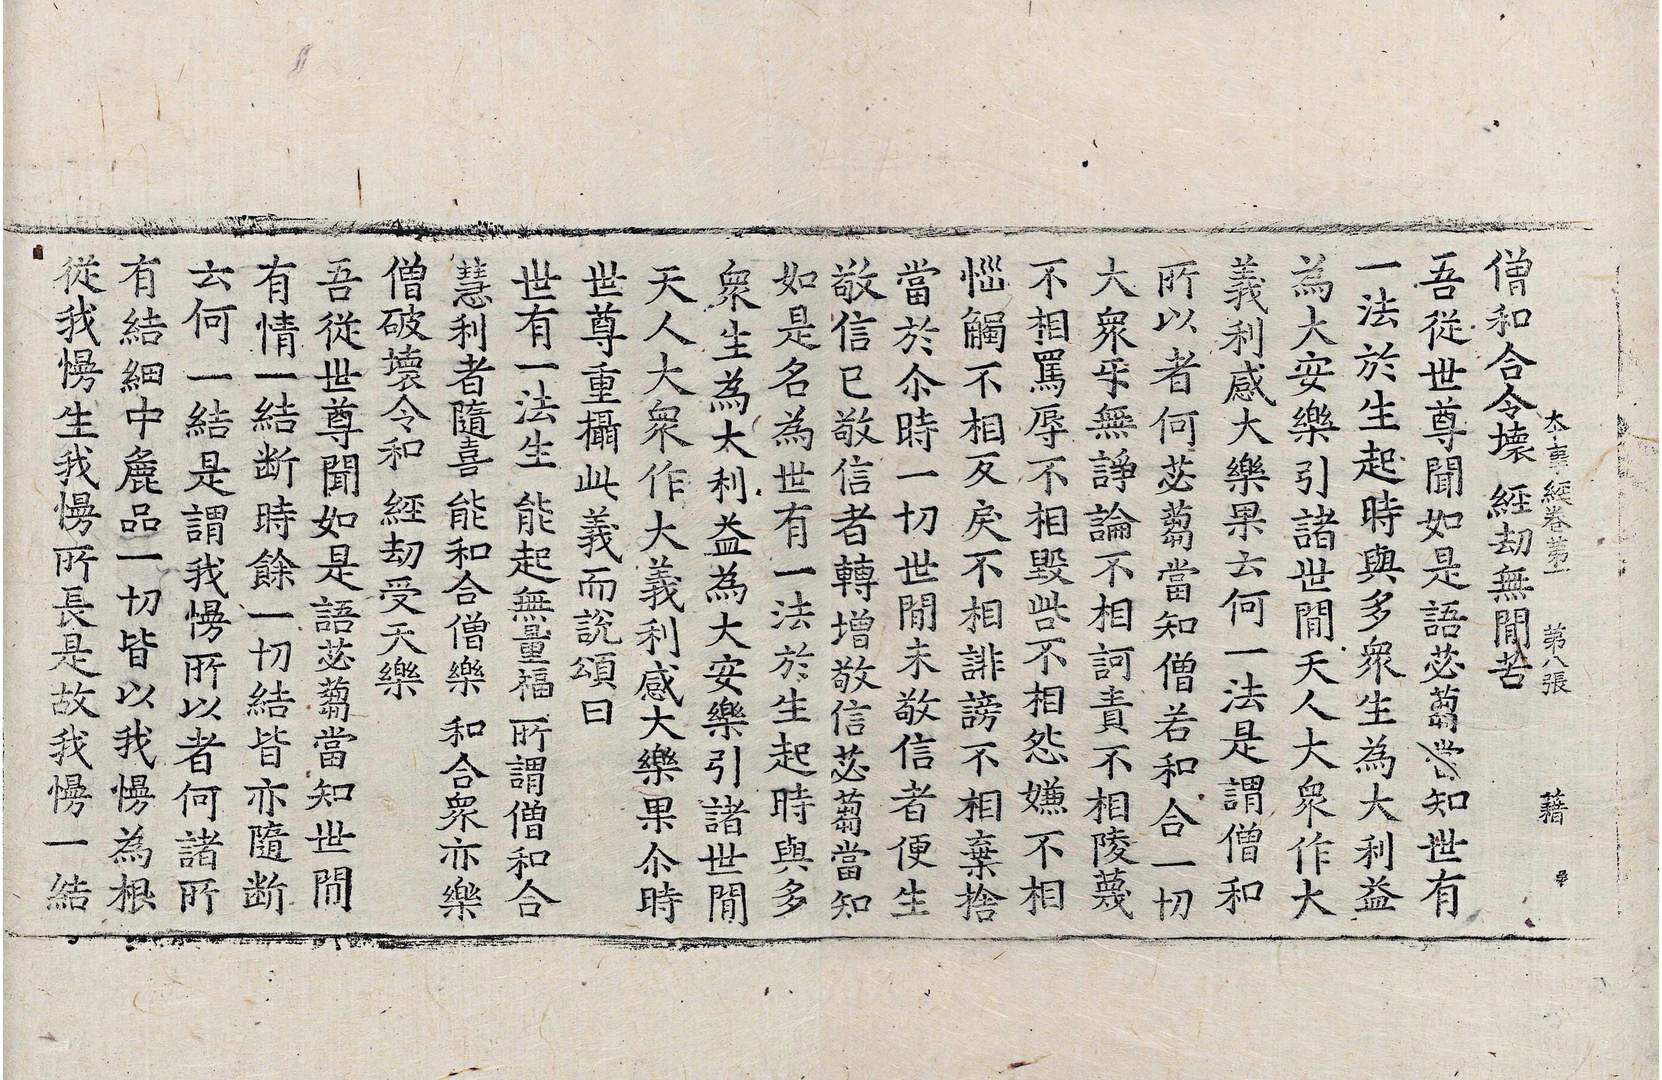 本事經卷第一　第八張　藉
僧和合令壞　經劫無閒苦
吾從世尊聞如是語苾蒭當知世有
一法於生起時與多眾生為大利益
為大安樂引諸世閒天人大眾作大
義利感大樂果云何一法是謂僧和
所以者何苾蒭當知僧若和合一切
大眾乎無諍論不相訶責不相陵蔑
不相罵辱不相毀呰不相怨嫌不相
惱觸不相反戾不相誹謗不相棄捨
當於尒時一切世閒未敬信者便生
敬信已敬信者轉增敬信苾蒭當知
如是名為世有一法於生起時與多
眾生為大利益為大安樂引諸世閒
天人大眾作大義利感大樂果尒時
世尊重攝此義而說頌曰
世有一法生　能起無量福　所謂僧和合
慧利者隨喜　能和合僧樂　和合眾亦樂
僧破壞令和　經劫受天樂
吾從世尊聞如是語苾蒭當知世閒
有情一結断時餘一切結皆亦隨断
云何一結是謂我慢所以者何諸所
有結細中麁品一切皆以我慢為根
從我慢生我慢所長是故我慢一結